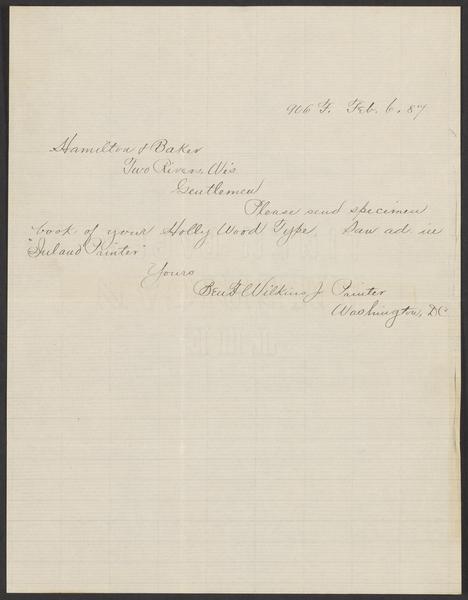 906 F. Feb. 6. 87
Hamilton & Baker
Two Rivers, Wis
Gentlemen
Please send specimen
book of your Holly Wood Type Saw ad in
"Inland Printer"
Yours
Wilkins Jr Printer
Washington, DC